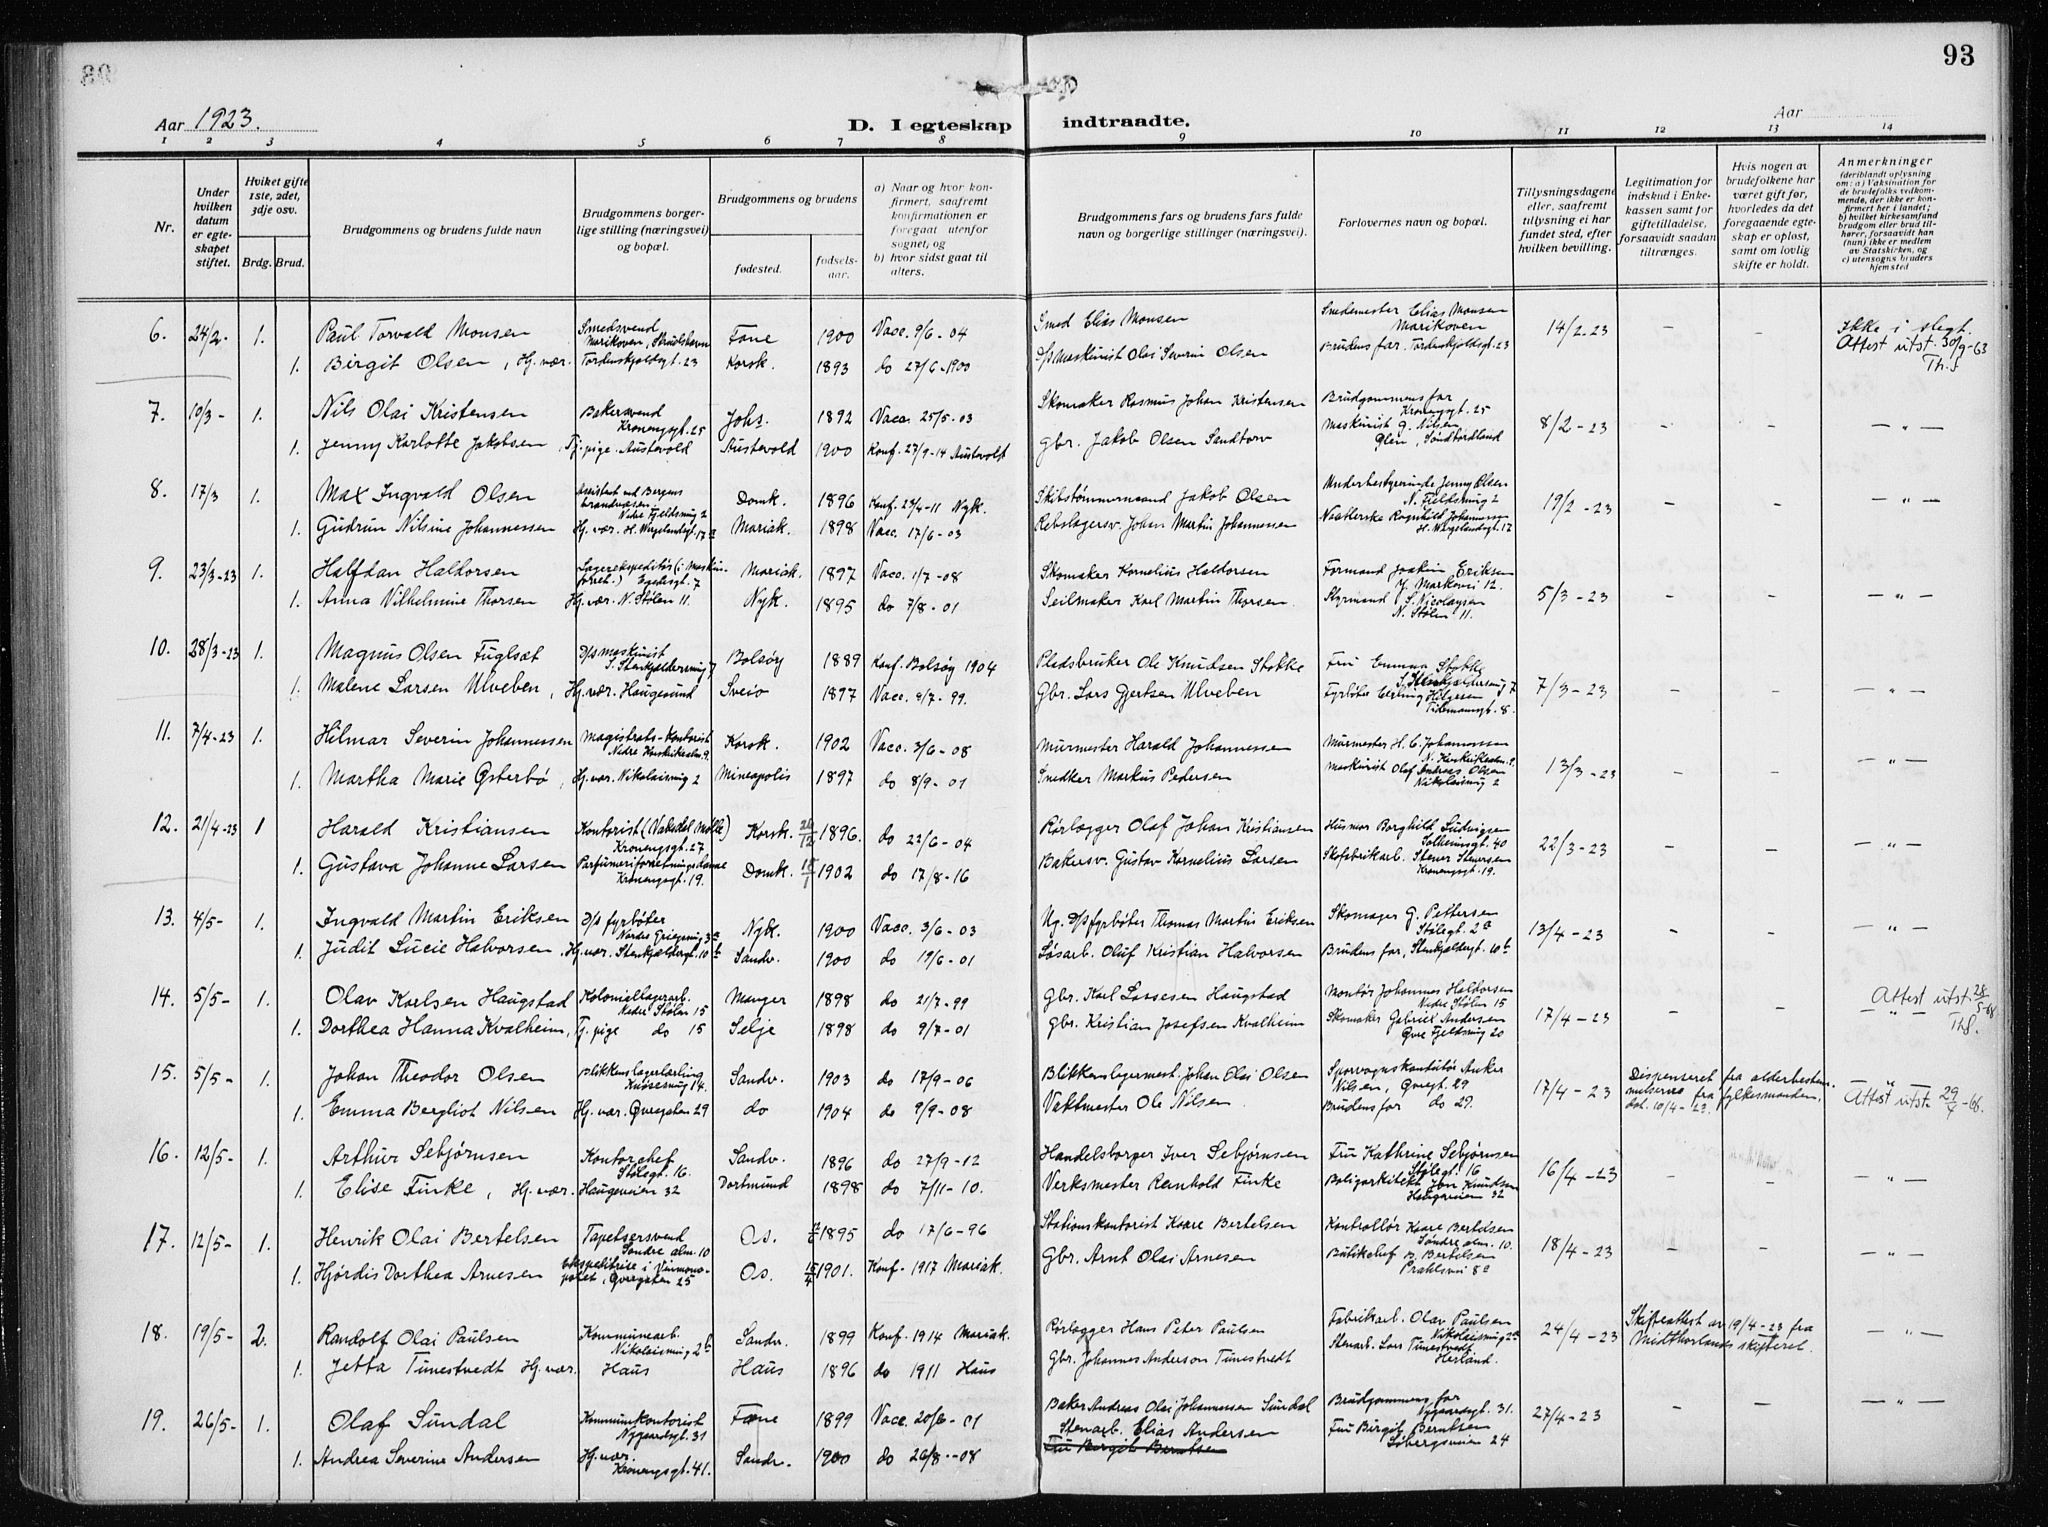 93
Aar 1923.
D. I egteskap indtraadte.
Aar
1 2 3 4 5 6 7 8 9 10 11 12 13 14
Nr.
Under hvilken datum er egteskapet stiftet.
Hviket gifte 1ste, 2det, 3dje osv.
Brdg. Brud.
Brudgommens og brudens fulde navn
Brudgommens borgerlige stilling (næringsvei) og bopæl.
Brudgommens og brudens
fødested.
fødselsaar.
a) Naar og hvor konfirmert, saafremt konfirmationen er foregaat utenfor sognet, og
b) hvor sidst gaat til alters.
Brudgommens fars og brudens fars fulde navn og borgerlige stillinger (næringsvei).
Forlovernes navn og bopæl.
Tillysningsdagene eller, saafremt tillysning ei har fundet sted, efter hvilken bevilling.
Legitimation for indskud i Enkekassen samt for giftetilladelse, forsaavidt saadan tiltrænges.
Hvis nogen av brudefolkene har været gift før, hvorledes da det foregaaende egteskap er opløst, samt om lovlig skifte er holdt.
Anmerkninger (deriblandt oplysning om: a) Vaksination for de brudefolks vedkommende, der ikke er konfirmert her i landet; b) hvilket kirkesamfund brudgom eller brud tilhører, forsaavidt han (hun) ikke er medlem av Statskirken, og c) utensogns bruders hjemsted
6. 24/2- 1. Paul Torvald Monsen Smedsvend Marikoven, Fane 1900 Vacc. 9/6-04 Smed Elias Monsen Smedemester Elias Monsen Marikoven 14/2-23 - - Ikke i slegt. Attest utst. 30/9-63
1. Birgit Olsen, Hj.vær. Tordenskjoldsgt. 23 Korsk. 1893 do 27/6-1900 D/s Maskinist Olai Severin Olsen Brudens far. Tordenskjoldsgt. 23 Th.S
7. 10/3- 1. Nils Olai Kristensen Bakersvend Kronengsgt. 25 Johs. 1892 Vacc. 25/5-03 Skomaker Rasmus Johan Kristensen Brudgommens far Kronengsgt. 25 8/2-23 - - -"-
1. Jenny Karlotte Jakobsen, Tj.pige. Austevold Austevold 1900 Konf. 27/9-14 Austevold Gbr. Jakob Olsen Sandtorv Maskinist G. Nilsen Søndfordland
8. 17/3 1. Max Ingvald Olsen Assistent ved Bergens brandvæsen Nedre Fjeldsmug 2 Domk. 1896 Konf. 23/4-11 Nyk. Skibstømmermand Jakob Olsen Underbestyrerinde Jenny Olsen N. Fjeldsmug 2 19/2-23 - - -"-
1. Gudrun Nilsine Johannessen Hj.vær. H. Wergelandsgt. 17 Mariak. 1898 Vacc. 17/6-03 Rebslagersv. Johan Martin Johannessen Ragnhild Johannessen H. Wergelandsgt. 17
9. 23/3-23 1. Halfdan Haldorsen Lagerekspeditør (i Maskinforret.) Egedesgt. 7 Mariak. 1897 Vacc. 1/7-08 Skomaker Kornelius Haldorsen Formand Joakim Eriksen Y. Markevei 12. 5/3-23 - - -"-
1. Anna Vilhelmine Thorsen Hj.vær. N. Stølen 11. Nyk. 1895 do 7/8-01 Seilmaker Karl Martin Thorsen. Styrmand S. Nicolaysen N. Stølen 11.
10. 28/3-23 1. Magnus Olsen Fuglsæt D/s maskinist S. Stenkjeldersmug 7 Bolsøy 1889 Konf. Bolsøy 1904 Pladsbruker Ole Knudsen Stokke Fru Emma Stokke S. Stenkjeldersmug 7 7/3-23 - - -"-
1. Malene Larsen Ulveben, Hj.vær. Haugesund Sveio 1897 Vacc. 9/7-99. Gbr. Lars Gjertsen Ulveben Fyrbøter Erling Helgesen Tidemansgt. 8.
11. 7/4-23 1. Hilmar Severin Johannessen Magistrats-kontorist Nedre Korskirkealm. 9. Korsk. 1902 Vacc. 3/6-08 Murmester Harald Johannessen Murmester H. C. Johannessen N. Korskirkealm. 9. 13/3-23 - - -"-
1. Martha Marie Østerbø, Hj.vær. Nikolaismug 2 Mineapolis 1897 do 8/9-01 Snedker Markus Pedersen Maskinist Olaf Andreas Olsen Nikolaismug 2
12. 21/4-23 1 Harald Kristiansen Kontorist (Vaksdal Mølle) Kronengsgt. 27 Korsk. 20/12 1896. do 22/6-04 Rørlægger Olaf Johan Kristiansen Husmor Borghild Ludvigsen Solheimsgt. 40 22/3-23 - - -"-
1. Gustava Johanne Larsen Parfumeriforretningsdame Kronengsgt. 19. Domk. 15/1 1902 do 17/8-16 Bakersv. Gustav Kornelius Larsen Skofabrikarb. Stener Stenersen Kronengsgt. 19.
13. 4/5- 1. Ingvald Martin Eriksen D/s fyrbøter Nedre Griegsmug 3a Nyk. 1900 Vacc. 3/6-03 Ng. D/s fyrbøter Thomas Martin Eriksen Skomager G. Pettersen Stølegt. 2a 13/4-23 - - -"-
1. Judit Lucie Halvorsen, Hj.vær. Stenkjeldergt. 10b Sandv. 1900 do 19/6-01 Løsarb. Oluf Kristian Halvorsen Brudens far, Stenkjeldergt. 10b
14. 5/5- 1. Olav Karlsen Haugstad Koloniallagerarb. Nedre Stølen 15 Manger 1898 do 21/7-99 Gbr. Karl Lassesen Haugstad Montør Johannes Haldorsen Nedre Stølen 15 17/4-23 - - -"- Attest utst. 28/5-68 Th.S.
1. Dorthea Hanna Kvalheim, Tj.pige do 15 Selje 1898 do 9/7-01 Gbr. Kristian Josefsen Kvalheim Skomaker Gabriel Andersen Øvre Fjeldsmug 20
15. 5/5- 1. Johan Theodor Olsen Blikkenslagerlærling Knøsesmug 14. Sandv. 1903 do 17/9-06 Blikkenslagermest. Johan Olai Olsen Sporvognskonduktør Anker Nilsen, Øvregt. 29 17/4-23 Dispenseret fra alderbestemmelserne fra fylkesmanden, dat. 10/4-23. -"- Attest utst. 29/4-68.
1. Emma Bergliot Nilsen Hj.vær. Øvregaten 29 do 1904 do 9/9-08 Vaktmester Ole Nilsen Brudens far do 29.
16. 12/5- 1. Arthur Sebjørnsen Kontorchef Stølegt. 16. Sandv. 1896 do 27/9-12 Handelsborger Iver Sebjørnsen Fru Kathrine Sebjørnsen Stølegt. 16 16/4-23 - - -"-
1. Elise Finke, Hj.vær. Haugeveien 32 Dortmund 1898 do 7/11-10. Verksmester Reinhold Finke Boligarkitekt Jon Knudsen Haugeveien 32
17. 12/5- 1. Henrik Olai Bertelsen Tapetsersvend Søndre alm. 10 Os. 1895 do 17/6-96 Stationskontorist Kaare Bertelsen Kontrollør Kaare Bertelsen Søndre alm. 10. 18/4-23 - - -"-
1. Hjørdis Dorthea Arnesen Ekspeditrise i Vinmonopolet, Øvregaten 25 Os. 15/4 1901. Konf. 1917 Mariak. Gbr. Arnt Olai Arnesen Butikchef B. Bertelsen Prahlsvei 8a
18. 19/5- 2. Randolf Olai Paulsen Kommunearb. Nikolaismug 2b Sandv. 1899 Konf. 1914 Mariak. Rørlægger Hans Peter Paulsen Fabrikarb. Olav Paulsen Nikolaismug 2a 24/4-23 Skifteattest av 19/4-23 fra Midthorlands skifteret. -"-
1. Jetta Tunestvedt Hj.vær. Haus Haus 1896 do 1911 Haus Gbr. Johannes Anderson Tunestvedt Stenarb. Lars Tunestvedt Herland.
19. 26/5- 1. Olaf Sundal Kommunekontorist Nygaardsgt. 31 Fane 1899 Vacc. 20/6-01 Baker Andreas Olai Johannessen Sundal Brudgommens far Nygaardsgt. 31. 27/4-23 - - -"-
1. Andrea Severine Andersen Hj.vær. Kronengsgt. 41. Sandv. 1900 do 26/8-08 Stenarb. Elias Andersen Fru Birgit Berntsen Fru Birgit Berntsen Solbergsveien 24